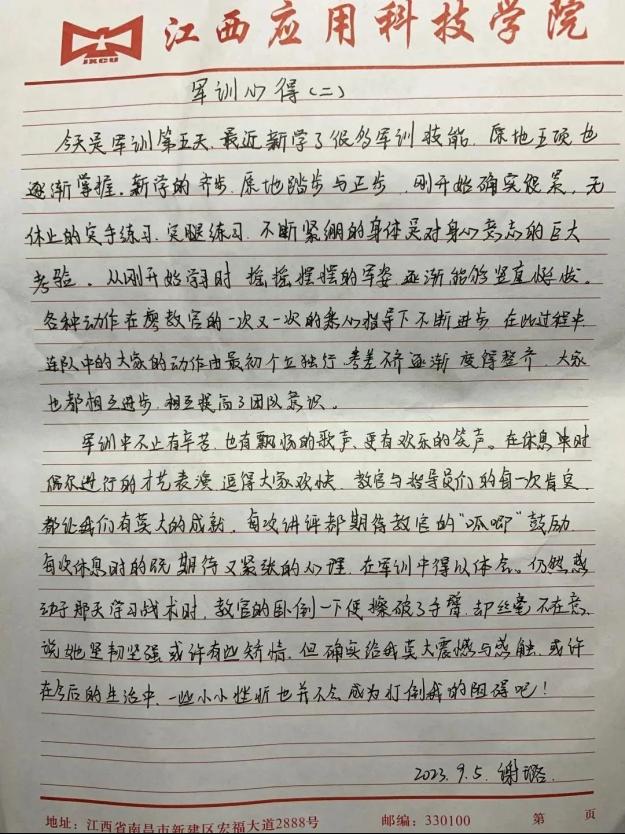 JXCU
江西应用科技学院
军训心得(二)
今天是军训第五天，最近新学了很多军训技能，原地五项也
逐渐掌握。新学的齐步、原地踏步与正步，刚开始确实很累，无
休止的定手练习、定腿练习，不断紧绷的身体是对身心意志的巨大
考验。从刚开始学习时摇摇摆摆的军姿逐渐能够竖直
各种动作在廖教官的一次又一次的悉心指导下不断进步，在此过程中
连队中的大家的动作由最初个立独行，参差不齐逐渐变得整齐，大家
也都相互进步，相互提高了团队意识。
军训中不止有辛苦，也有飘扬的歌声，更有欢乐的笑声。在休息中时
偶尔进行的才艺表演，逗得大家欢快，教官与指导员们的每一次肯定
都让我们有莫大的成就，每次讲评都期待教官的“呱唧”鼓励
每次休息时的既期待又紧张的心理，在军训中得以体会。仍然感
动于那天学习战术时，教官的卧倒一下便擦破了手臂，却丝毫不在意
说她坚韧坚强或许有些矫情，但确实给我莫大震憾与感触，或许
在今后的生活中，一些小小挫折也并不会成为打倒我的阻碍吧！
2023.9.5.谢
地址：江西省南昌市新建区宏福大道2888号 邮编：330100 第 页